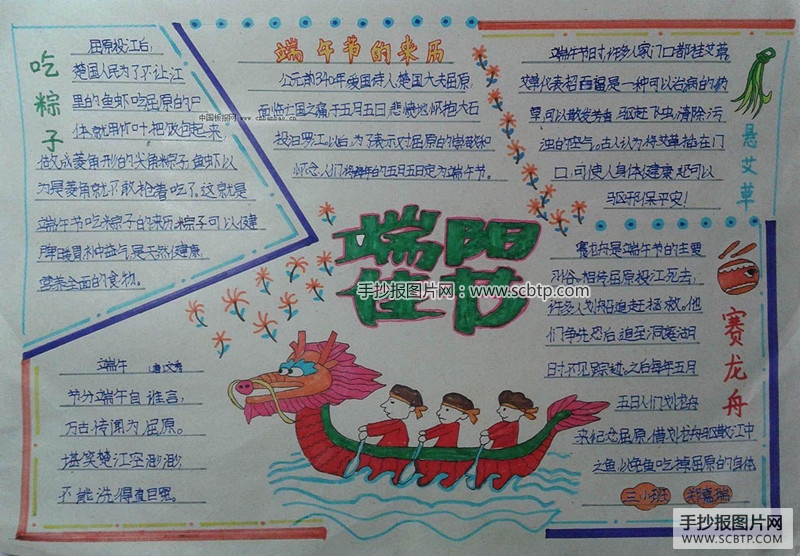 吃粽子
屈原投江后,
楚国人民为了不让江
里的鱼虾吃屈原的尸
体就用竹叶把饭包起来
做成菱角形的尖角粽子,鱼虾以
为是菱角就不敢抢着吃了,这就是
端午节吃粽子的来历.粽子可以健
脾暖胃补中益气,是天然健康,
营养全面的食物。
端午节的来历
公元前340年,爱国诗人楚国大夫屈原,
面临亡国之痛,于五月五日,悲愤地怀抱大石
投汨罗江,以后,为了表示对屈原的崇敬和
怀念,人们将每年的五月五日定为端午节。
悬艾草
端午节时,许多人家门口都挂艾草,
艾草代表招百福,是一种可以治病的药
草,可以散发芳香,驱赶飞虫,清除污
浊的空气。古人认为,将艾草插在门
口,可使人身体健康,还可以
驱邪保平安!
端阳
佳节
赛龙舟
赛龙舟是端午节的主要
习俗,相传屈原投江死去,
许多人划船追赶拯救。他
们争先恐后,追至洞庭湖
时不见踪迹。之后每年五月
五日人们划龙舟
来纪念屈原,借划龙舟驱散江中
之鱼,以免鱼吃掉屈原的身体
三小班 郑嘉瑞
端午 (唐)文秀
节分端午自谁言,
万古传闻为屈原。
堪笑楚江空渺渺,
不能洗得直臣冤。
中国板报网
手抄报图片网:www.scbtp.com
手抄报图片网
WWW.SCBTP.COM